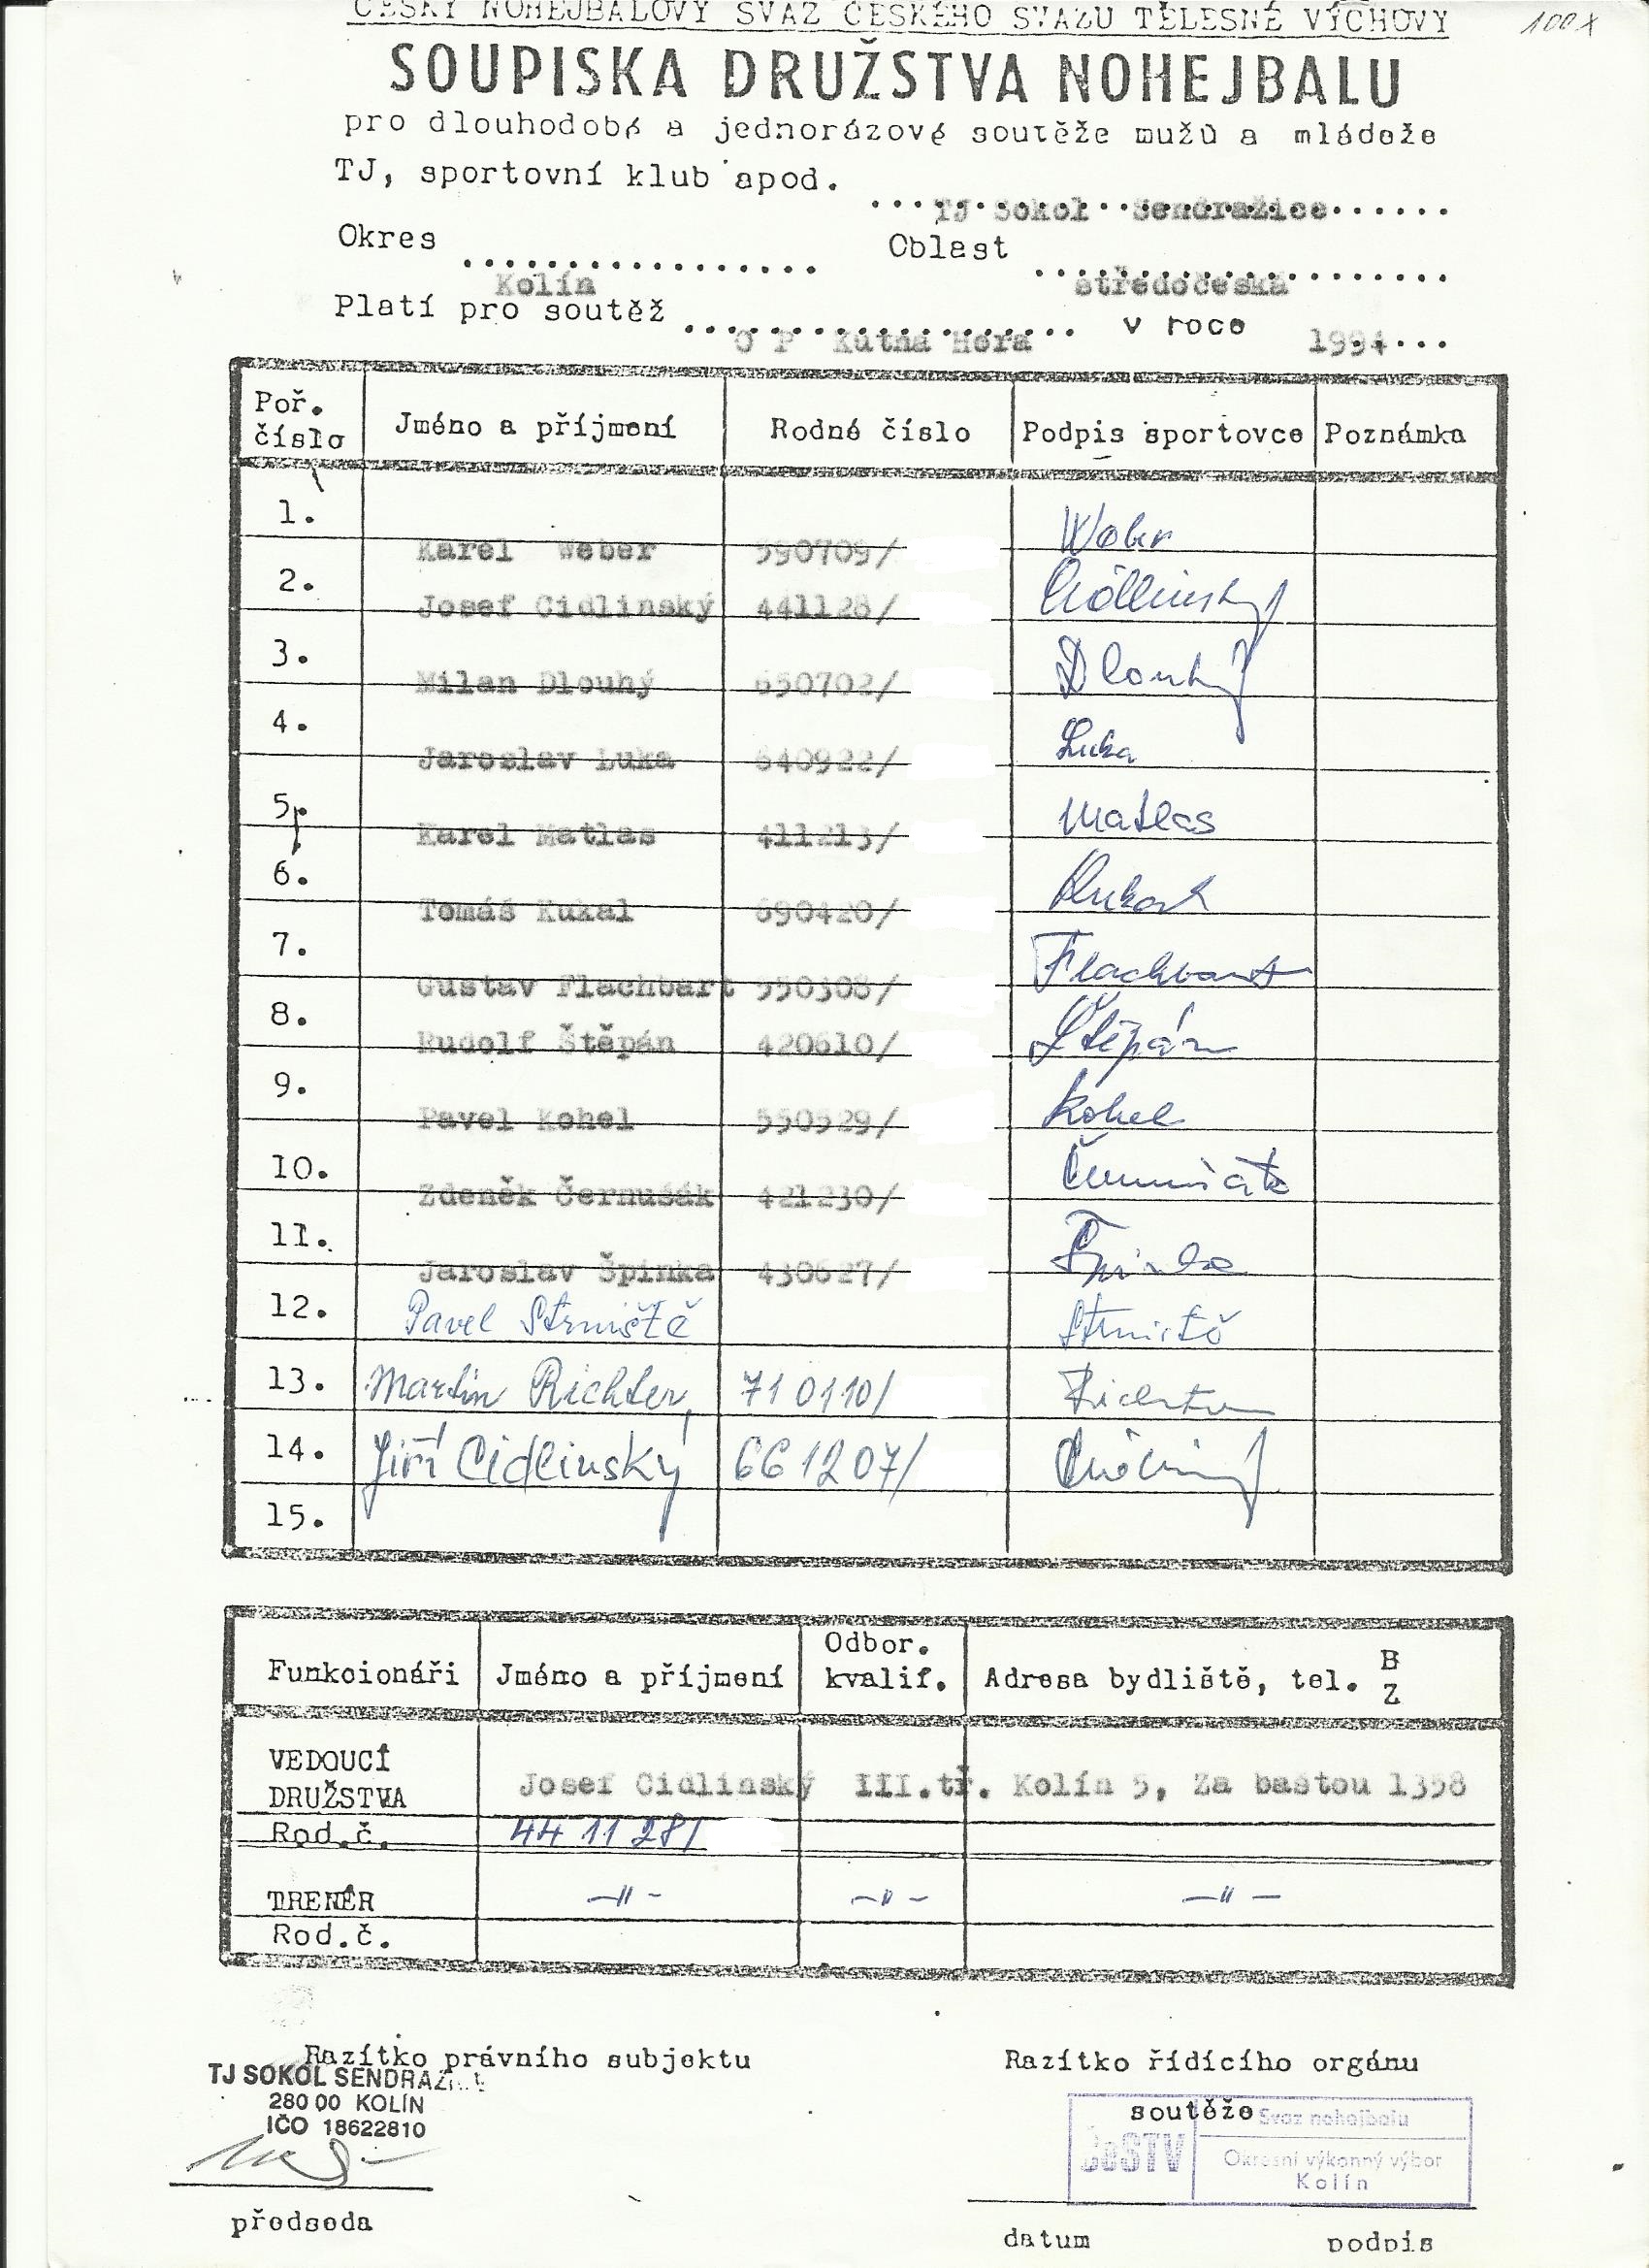 ČESKÝ NOHEJBALOVÝ SVAZ ČESKÉHO SVAZU TĚLESNÉ VÝCHOVY
100x
SOUPISKA DRUŽSTVA NOHEJBALU
pro dlouhodobé a jednorázové soutěže mužů a mládeže
TJ, sportovní klub apod. TJ Sokol Sendražice
Okres Kolín Oblast středočeská
Platí pro soutěž O P Kutná Hora v roce 1994
Poř. číslo Jméno a příjmení Rodné číslo Podpis sportovce Poznámka
1. Karel Weber 590709/ Weber
2. Josef Cidlinský 441128/ Cidlinský
3. Milan Dlouhý 650702/ Dlouhý
4. Jaroslav Luka 640922/ Luka
5. Karel Matlas 411213/ Matlas
6. Tomáš Kukal 690420/ Kukal
7. Gustav Flachbart 550308/ Flachbart
8. Rudolf Štěpán 420610/ Štěpán
9. Pavel Kohel 550529/ Kohel
10. Zdeněk Černušák 421230/ Černušák
11. Jaroslav Špinka 430627/ Špinka
12. Pavel Strniště Strniště
13. Martin Richter, 710110/ Richter
14. Jiří Cidlinský 661207/ Cidlinský
15.
Funkcionáři Jméno a příjmení Odbor. kvalif. Adresa bydliště, tel. B Z
VEDOUCÍ
DRUŽSTVA Josef Cidlinský III.tř. Kolín 5, Za baštou 1358
Rod.č. 441128/
TRENÉR –"– –"– –"–
Rod.č.
Razítko právního subjektu Razítko řídícího orgánu
soutěže
TJ SOKOL SENDRAŽ
280 00 KOLÍN
IČO 18622810
ČeSTV Svaz nohejbalu
Okresní výkonný výbor
Kolín
předseda
datum podpis